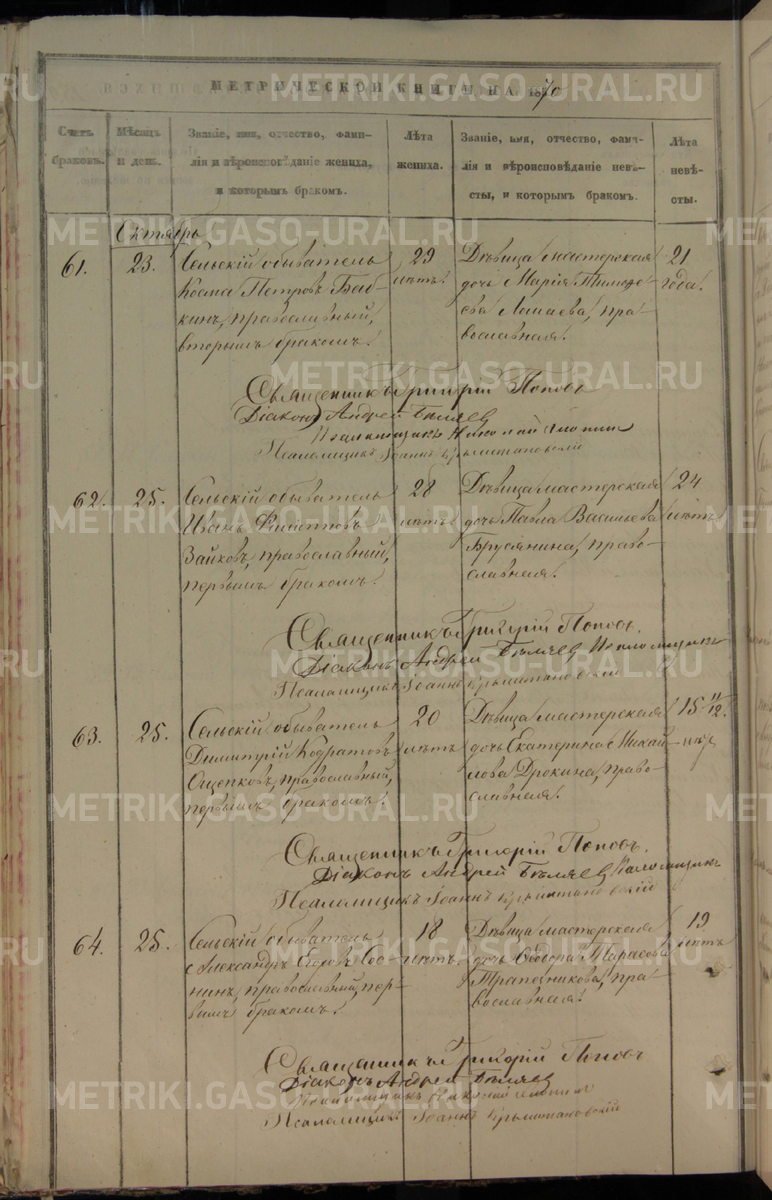 МЕТРИЧЕСКОЙ КНИГИ НА 1870
Счетъ браковъ.
Мѣсяцъ и день.
Званіе, имя, отчество, фами-
лія и вѣроисповѣданіе жениха,
и которымъ бракомъ.
Лѣта жениха.
Званіе, имя, отчество, фами-
лія и вѣроисповѣданіе невѣ-
сты, и которымъ бракомъ.
Лѣта невѣ-
сты.
Октябрь
61.
23.
Сельскій обыватель
Косма Петровъ Баб-
кинъ, православный,
вторымъ бракомъ.
29
лѣтъ.
Дѣвица мастерская
дочь Марія Тимофе-
ева, пра-
вославная.
21
года.
Священникъ Григорій Поповъ
Діаконъ Андрей Бѣляевъ
Псаломщикъ Николай
Псаломщикъ Іоаннъ
62.
25.
Сельскій обыватель
Иванъ
Зайковъ, православный,
первымъ бракомъ.
28
лѣтъ
Дѣвица мастерская
дочь Павла Васильева
Брусянина, право-
славная.
24
лѣтъ
Священникъ Григорій Поповъ.
Діаконъ Андрей Бѣляев Псаломщикъ
Псаломщикъ Іоаннъ
63.
25.
Сельскій обыватель
Димитрій Кодратовъ
Ощепковъ, православный,
первымъ бракомъ.
20
лѣтъ
Дѣвица мастерская
дочь Екатерина Михай-
лова Дрокина, право-
славная.
15 11/12.
лѣт
Священникъ Григорій Поповъ.
Діаконъ Андрей Бѣляев Псаломщикъ
Псаломщикъ Іоаннъ
64.
25.
Сельскій обыватель
Александръ Егоровъ Сос-
нинъ, православный, пер-
вымъ бракомъ.
18
лѣтъ.
Дѣвица мастерская
дочь Ѳедора Тарасова
Трапезникова, пра-
вославная.
19
лѣтъ
Священникъ Григорій Поповъ
Діаконъ Андрей Бѣляев
Псаломщикъ Николай
Псаломщикъ Іоаннъ
METRIKI.GASO-URAL.RU